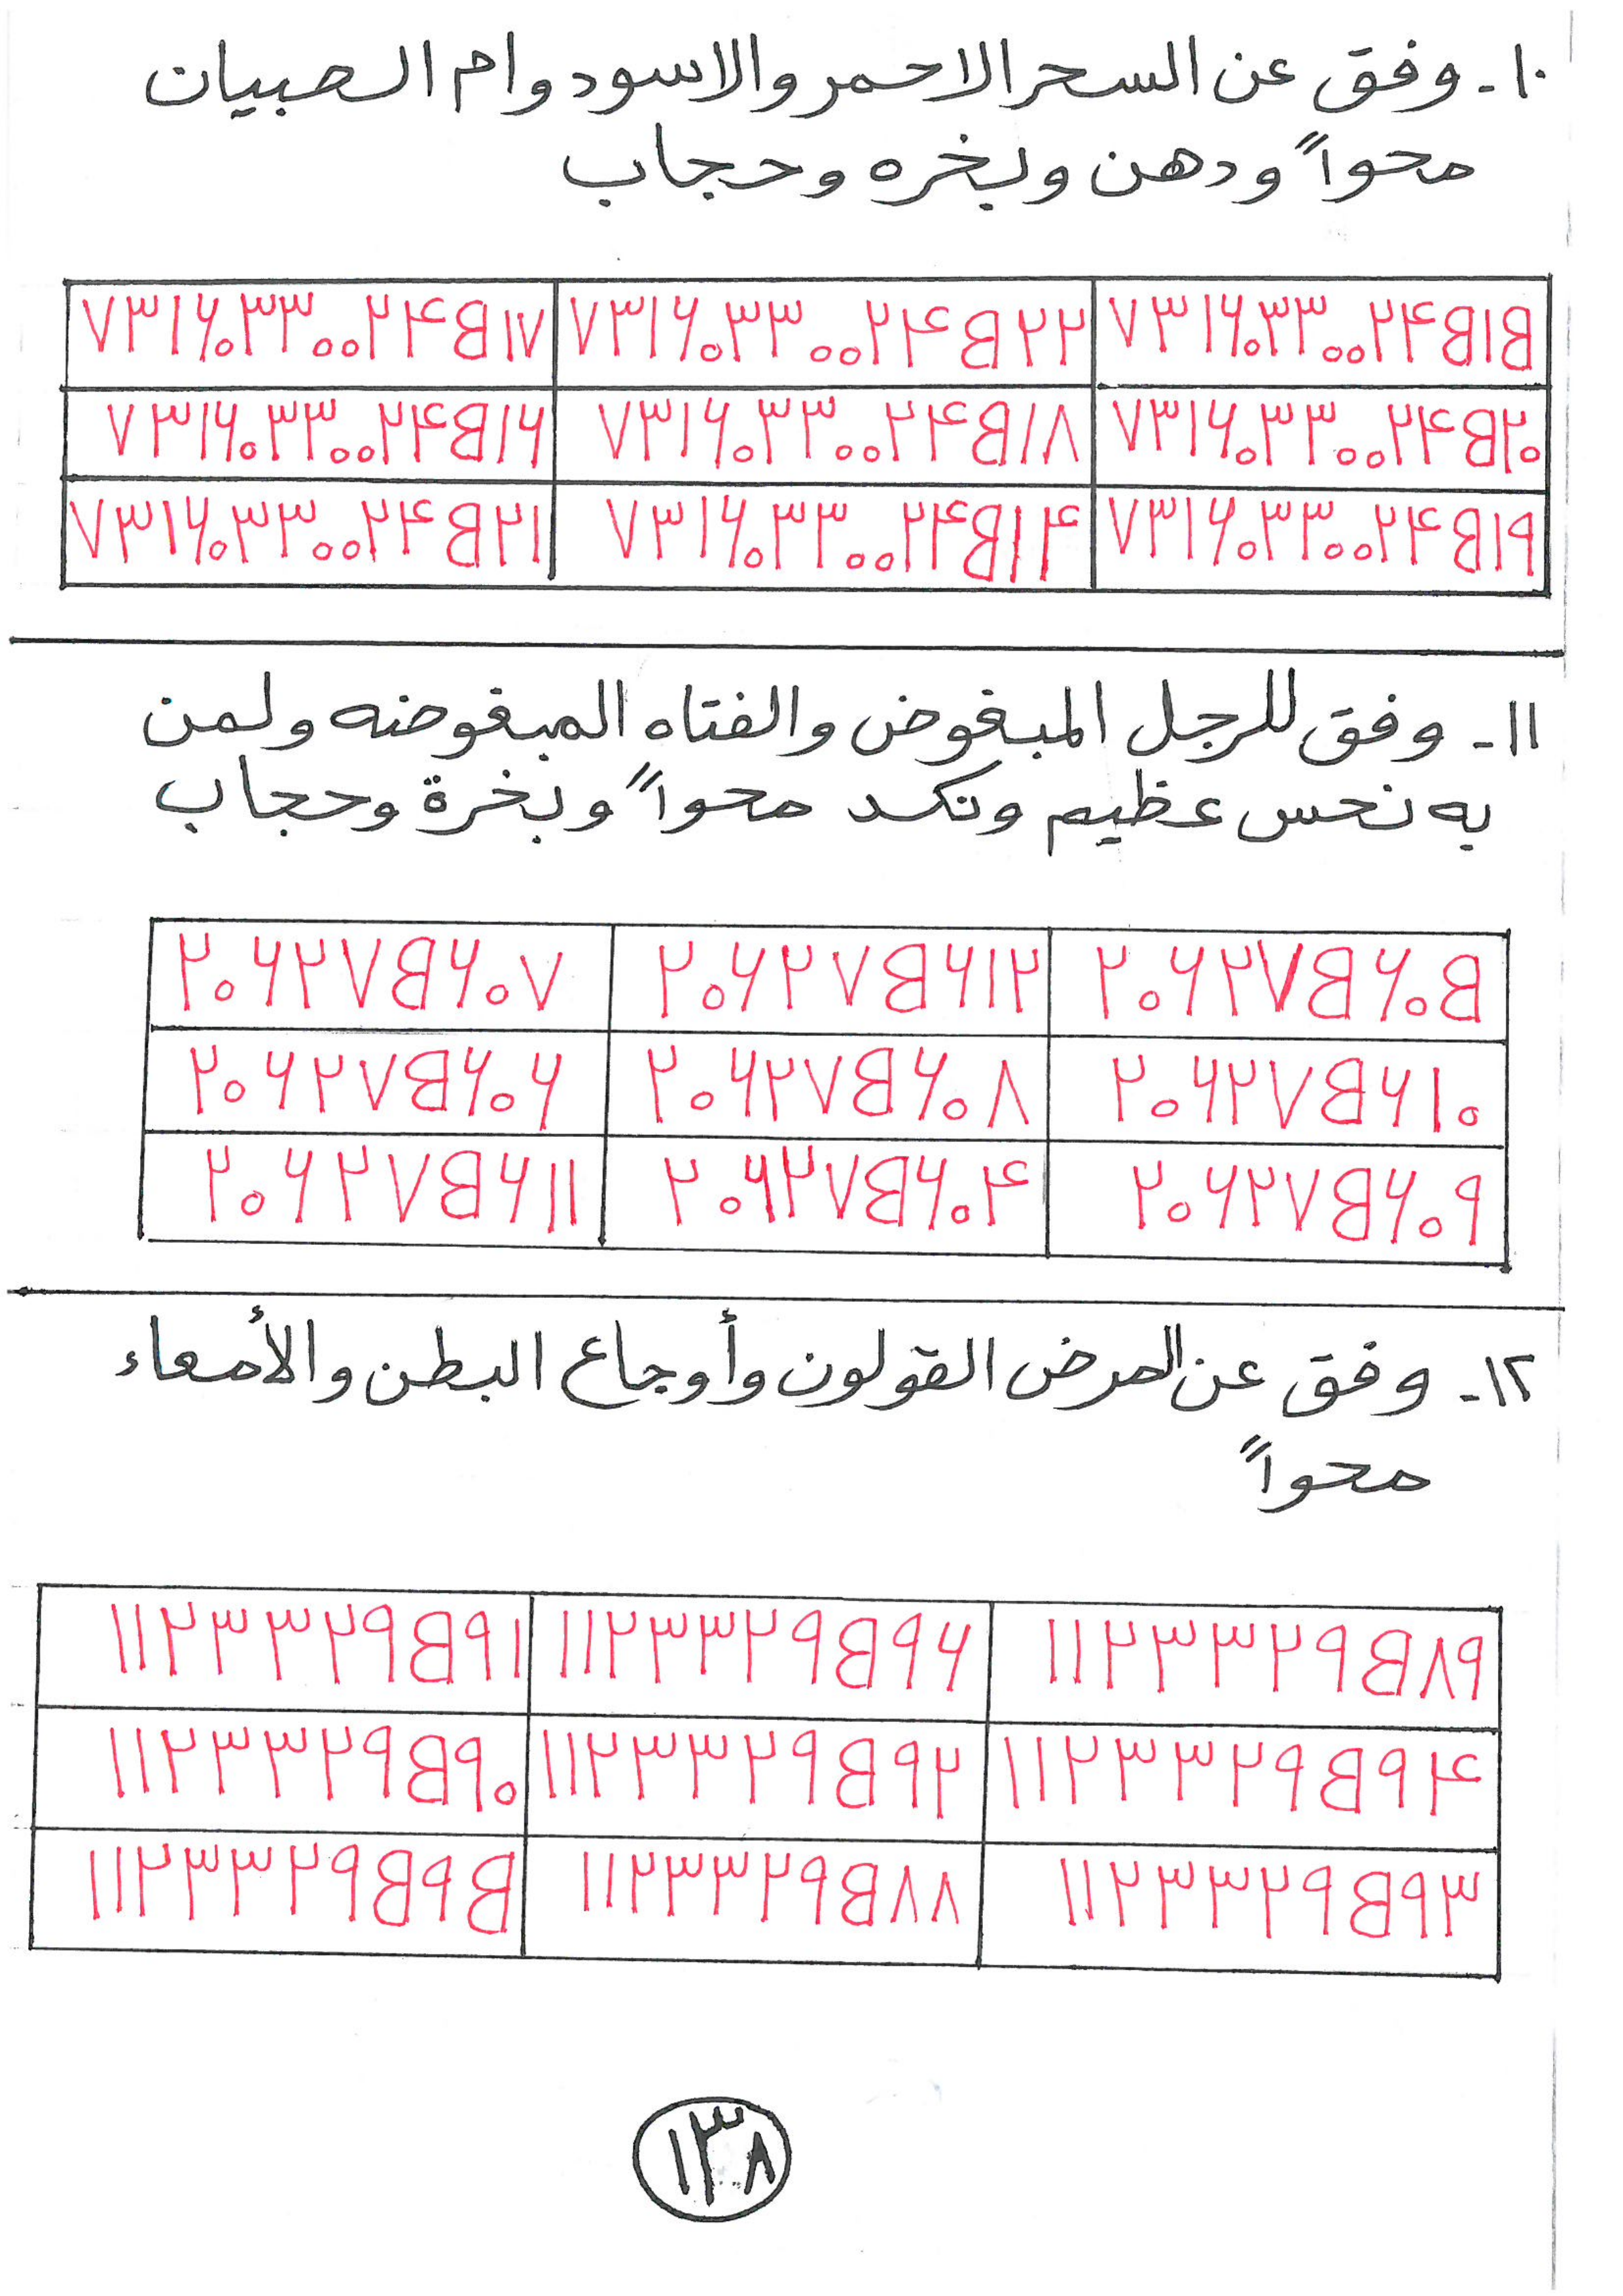 ١٠- وفق عن السحر الاحمر والاسود وام الصبيان
محواً ودهن وبخره وحجاب
٧٣١٦٠٣٣٠٠٢٤B١B ٧٣١٦٠٣٣٠٠٢٤B٢٢ ٧٣١٦٠٣٣٠٠٢٤B١٧
٧٣١٦٠٣٣٠٠٢٤B٢٠ ٧٣١٦٠٣٣٠٠٢٤B١٨ ٧٣١٦٠٣٣٠٠٢٤B١٦
٧٣١٦٠٣٣٠٠٢٤B١٩ ٧٣١٦٠٣٣٠٠٢٤B١٤ ٧٣١٦٠٣٣٠٠٢٤B٢١
١١- وفق للرجل المبغوض والفتاه المبغوضه ولمن
به نحس عظيم ونكد محواً وبخرة وحجاب
٢٠٦٢٧B٦٠B ٢٠٦٢٧B٦١٢ ٢٠٦٢٧B٦٠٧
٢٠٦٢٧B٦١٠ ٢٠٦٢٧B٦٠٨ ٢٠٦٢٧B٦٠٦
٢٠٦٢٧B٦٠٩ ٢٠٦٢٧B٦٠٤ ٢٠٦٢٧B٦١١
١٢- وفق عن المرض القولون وأوجاع البطن والأمعاء
محواً
١١٢٣٣٢٩B٨٩ ١١٢٣٣٢٩B٩٦ ١١٢٣٣٢٩B٩١
١١٢٣٣٢٩B٩٤ ١١٢٣٣٢٩B٩٢ ١١٢٣٣٢٩B٩٠
١١٢٣٣٢٩B٩٣ ١١٢٣٣٢٩B٨٨ ١١٢٣٣٢٩B٩B
١٣٨